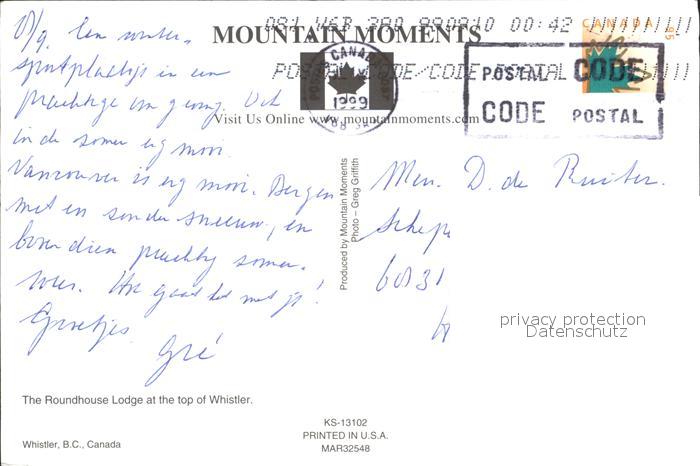 MOUNTAIN MOMENTS
081 V6B 3B0 990810 00:42
CANADA
POSTAL CODE/CODE POSTAL
CANADA
1999
POSTAL CODE
CODE POSTAL
Visit Us Online www.mountainmoments.com
Een winter-
sportplaatsje in een
prachtige omgeving. Ook
in de zomer erg mooi.
Vancouver is erg mooi. Bergen
met en zonder sneeuw, en
bovendien prachtig zomer-
weer. Hoe gaat het met je?
Groetjes
Gré
Produced by Mountain Moments
Photo – Greg Griffith
Mevr. D. de Ruiter.
privacy protection
Datenschutz
The Roundhouse Lodge at the top of Whistler.
Whistler, B.C., Canada
KS-13102
PRINTED IN U.S.A.
MAR32548